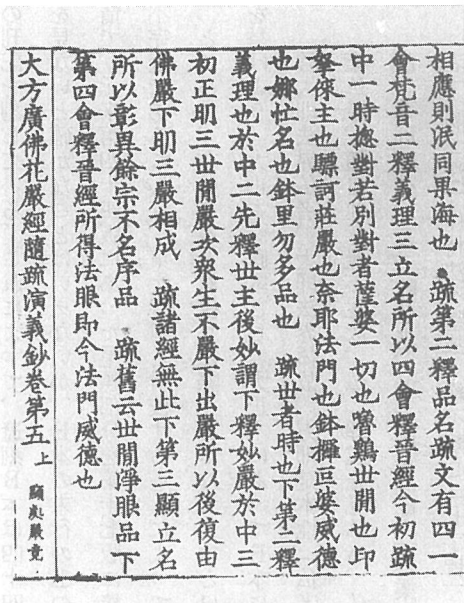 相應則泯同果海也　疏第二釋品名疏文有四一
會梵音二釋義理三立名所以四會釋晉經今初疏
中一時揔對若別對者薩婆一切也嚕鷄世間也印
拏倈主也驃訶莊嚴也奈耶法門也鉢攞亘婆威德
也娜忙名也鉢里勿多品也　疏世者時也下第二釋
義理也於中二先釋世主後妙謂下釋妙嚴於中三
初正明三世間嚴次衆生不嚴下出嚴所以後復由
佛嚴下明三嚴相成　疏諸經無此下第三顯立名
所以彰異餘宗不名序品　疏舊云世間淨眼品下
第四會釋晉經所得法眼即今法門威德也
大方廣佛花嚴經隨疏演義鈔卷第五上